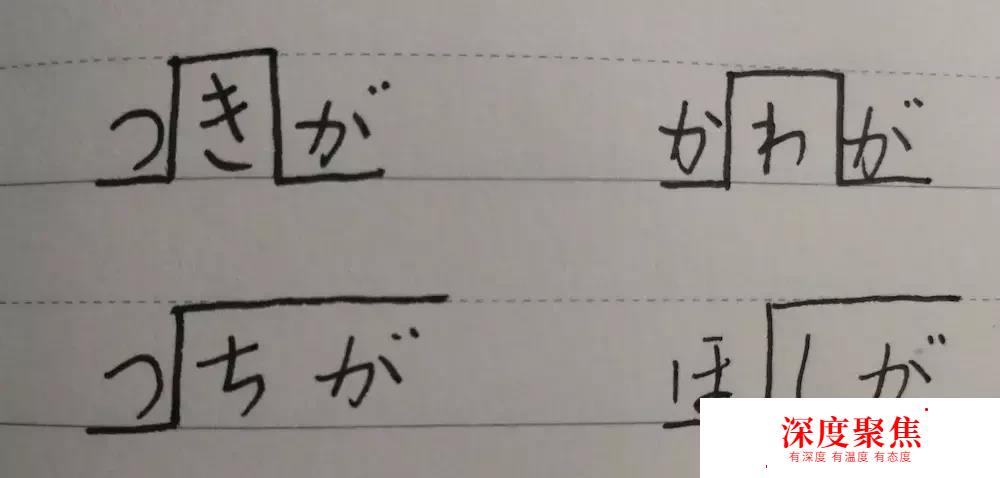 つきが かわが
つちが ほしが
深度聚焦
有深度 有温度 有态度